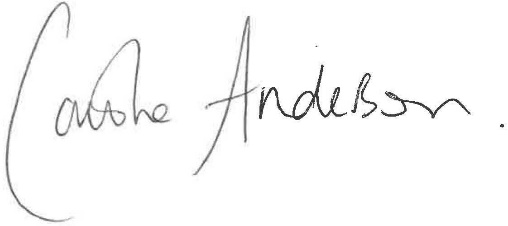 Caroline Anderson.